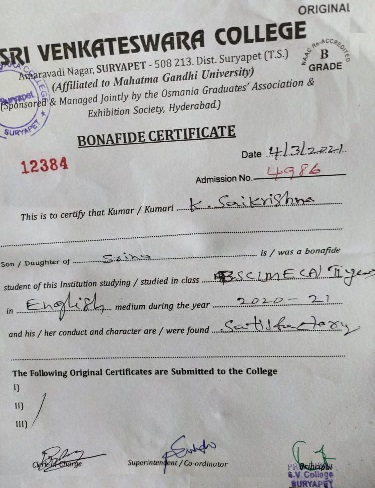 ORIGINAL
SRI VENKATESWARA COLLEGE
Asharavadi Nagar, SURYAPET - 508 213. Dist. Suryapet (T.S.)
(Affiliated to Mahatma Gandhi University)
NAAC Re-ACCREDITED
B
GRADE
(Sponsored & Managed Jointly by the Osmania Graduates' Association &
Exhibition Society, Hyderabad.)
COLLEGE
Suryapet
SURYAPET
BONAFIDE CERTIFICATE
12384
Date 4/3/2021
Admission No. 4986
This is to certify that Kumar / Kumari K. Saikrishna
Son / Daughter of is / was a bonafide
student of this Institution studying / studied in class
in English medium during the year 2020-21
and his / her conduct and character are / were found Satisfactory
The Following Original Certificates are Submitted to the College
I)
II)
III)
Clerk in Charge
Superintendent / Co-ordinator
Principal
S.V. College
SURYAPET